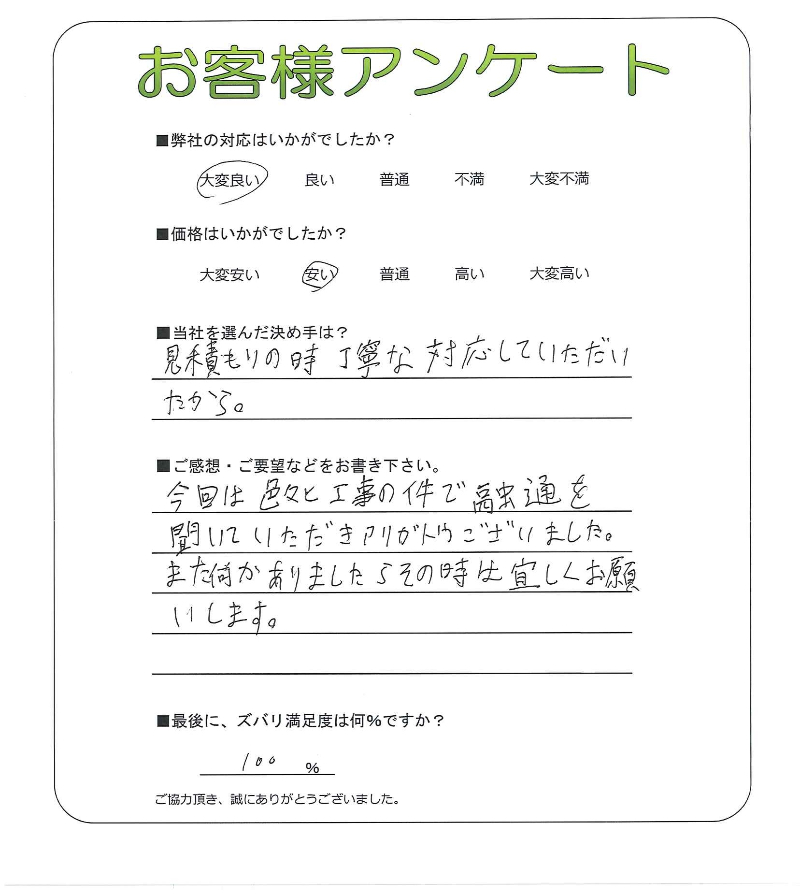 お客様アンケート
■弊社の対応はいかがでしたか？
大変良い 良い 普通 不満 大変不満
■価格はいかがでしたか？
大変安い 安い 普通 高い 大変高い
■当社を選んだ決め手は？
見積もりの時丁寧な対応していただい
たから。
■ご感想・ご要望などをお書き下さい。
今回は色々と工事の件で融通を
聞いていただきアリガトウございました。
また何かありましたらその時は宜しくお願
いします。
■最後に、ズバリ満足度は何%ですか？
100 %
ご協力頂き、誠にありがとうございました。